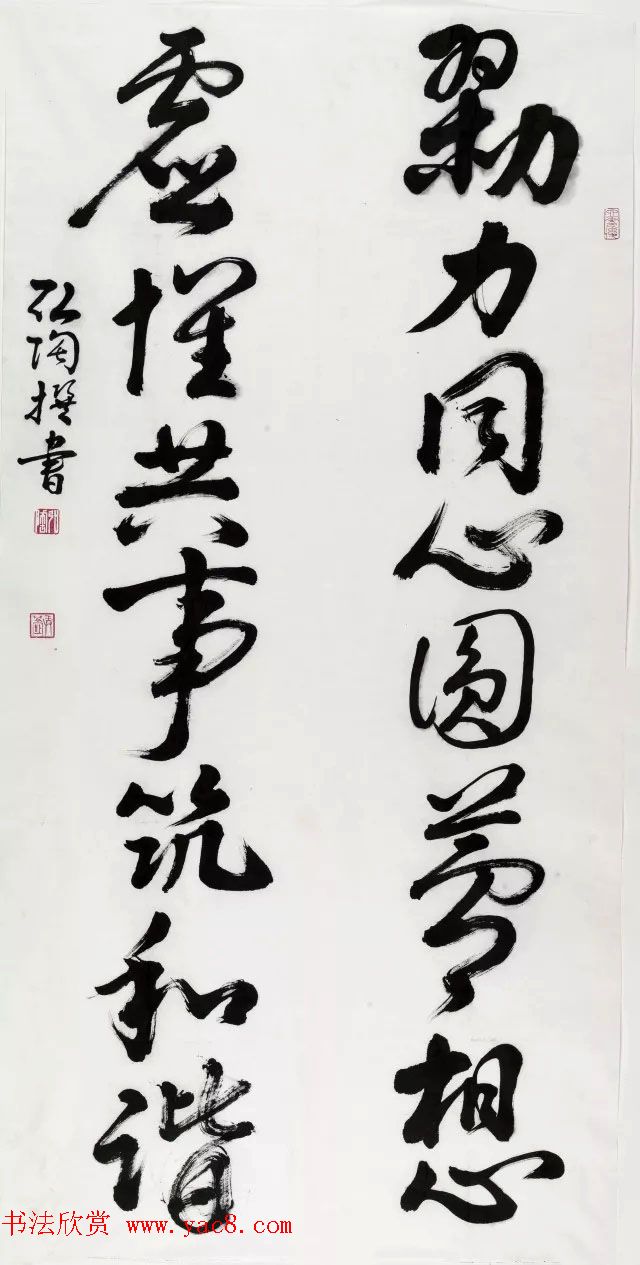 勠力同心圓夢想
虛懷共事筑和諧
弘陶撰書
书法欣赏 www.yac8.com